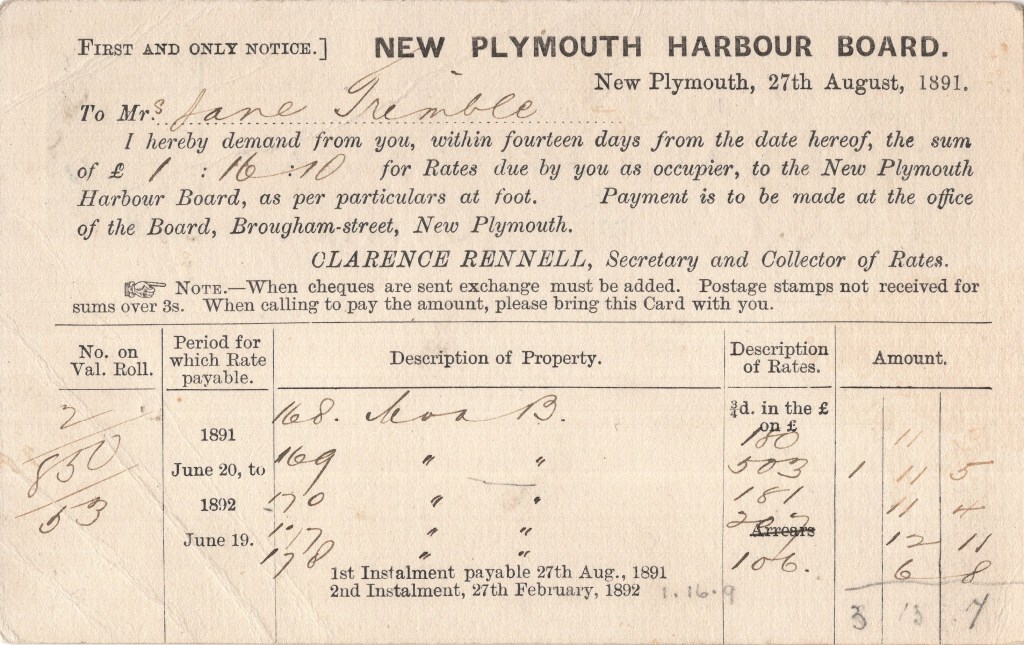 FIRST AND ONLY NOTICE.] NEW PLYMOUTH HARBOUR BOARD.
New Plymouth, 27th August, 1891.
To Mrs Jane Trimble
I hereby demand from you, within fourteen days from the date hereof, the sum
of £ 1 : 16 : 10 for Rates due by you as occupier, to the New Plymouth
Harbour Board, as per particulars at foot. Payment is to be made at the office
of the Board, Brougham-street, New Plymouth.
CLARENCE RENNELL, Secretary and Collector of Rates.
☞ NOTE.—When cheques are sent exchange must be added. Postage stamps not received for
sums over 3s. When calling to pay the amount, please bring this Card with you.
No. on Val. Roll.
Period for which Rate payable.
Description of Property.
Description of Rates.
Amount.
2
850
53
1891
June 20, to
1892
June 19.
168. Moa B.
169 " "
170 " "
" "
178 " "
¾d. in the £
on £
180 11
503 1 11 5
181 11 4
Arrears
12 11
106. 6 8
1st Instalment payable 27th Aug., 1891
2nd Instalment, 27th February, 1892 1.16.9
3 13 7